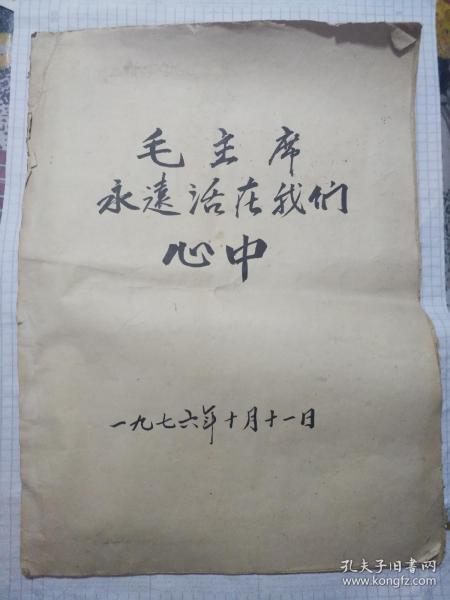 毛主席
永遠活在我们
心中
一九七六年十月十一日
孔夫子旧书网
www.kongfz.com